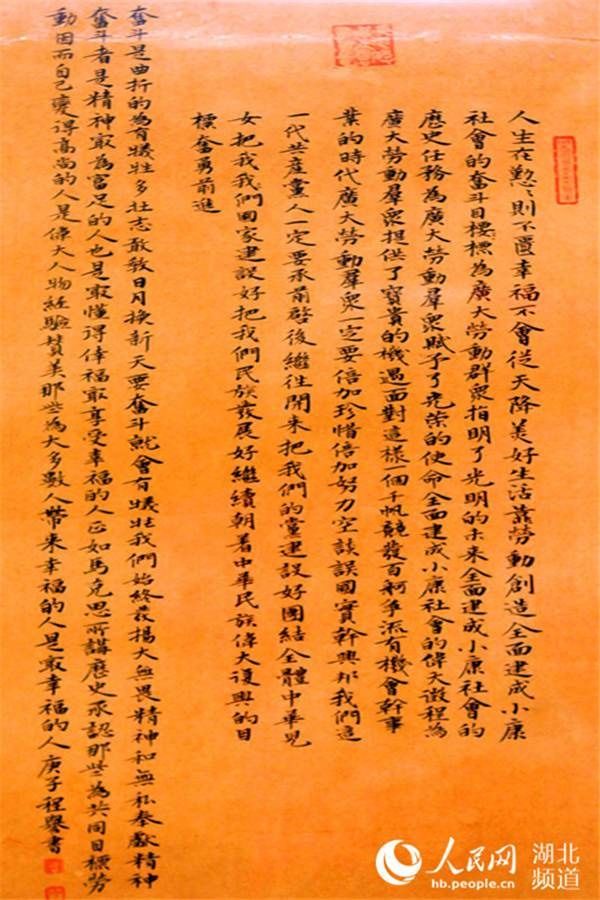 人生在懃則不匱幸福不會從天降美好生活靠勞動創造全面建成小康
社會的奮斗目標為廣大勞動群衆指明了光明的未来全面建成小康社會的
歷史任務為廣大勞動羣衆賦予了光荣的使命全面建成小康社會的偉大徵程為
廣大勞動羣衆提供了寶貴的機遇面對這樣一個千帆競發百舸争流有機會幹事
業的時代廣大勞動羣衆一定要倍加珍惜倍加努力空談誤國實幹興邦我們這
一代共產黨人一定要承前啓後繼往開来把我們的黨建設好團結全體中華兒
女把我我們囯家建設好把我們民族發展好繼續朝着中華民族偉大復興的目
標奮勇前進
奮斗是曲折的為有犧牲多壮志敢教日月换新天要奮斗就會有犧牲我們始終發揚大無畏精神和無私奉獻精神
奮斗者是精神最為富足的人也是最懂得倖福最享受幸福的人正如馬克思所講歷史承認那些為共同目標勞
動因而自己變得高尚的人是偉大人物经驗賛美那些為大多數人帶来幸福的人是最幸福的人庚子程譽書
人民网
hb.people.cn
湖北
频道